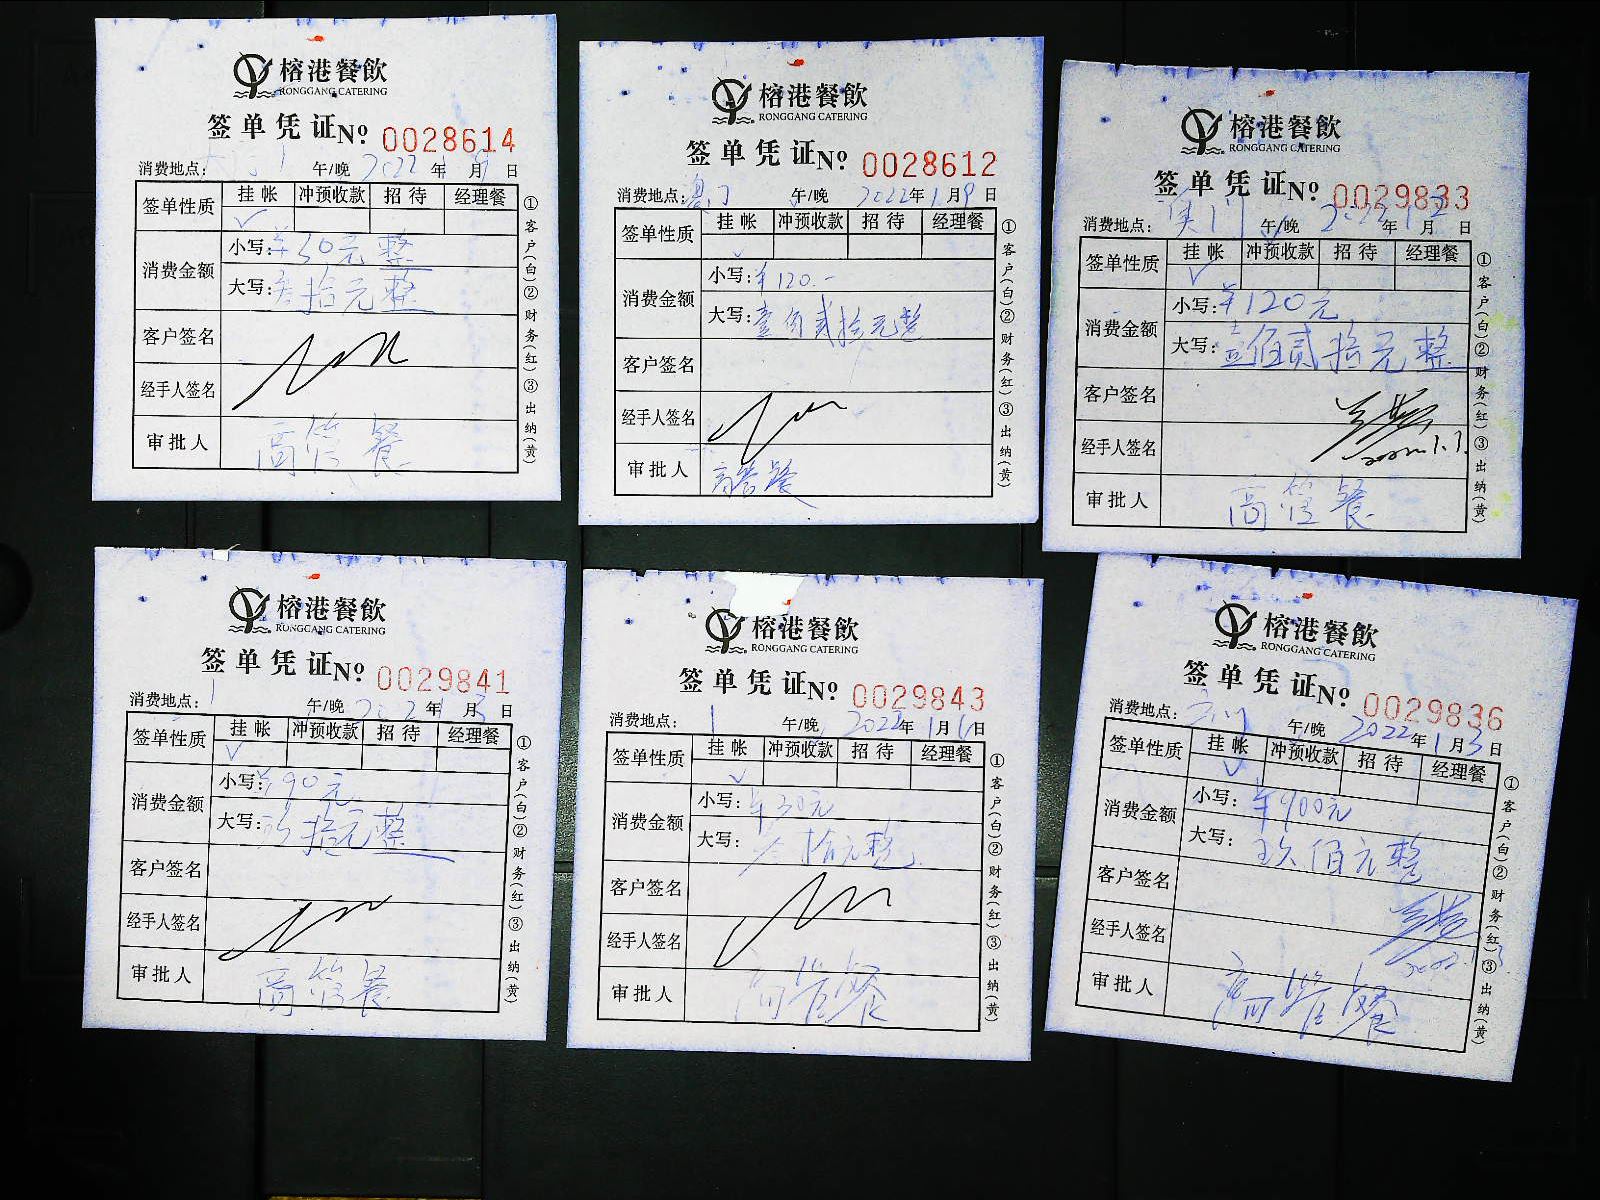 榕港餐飲
RONGGANG CATERING
签单凭证No 0028614
消费地点: 午/晚 2022年1月9日
签单性质 挂帐 冲预收款 招待 经理餐
消费金额
小写: 元整
大写: 拾元整
客户签名
经手人签名
审批人 高管餐
①客户(白)②财务(红)③出纳(黄)
榕港餐飲
RONGGANG CATERING
签单凭证No 0028612
消费地点:澳门 午/晚 2022年1月9日
签单性质 挂帐 冲预收款 招待 经理餐
消费金额
小写:¥120.-
大写:壹佰贰拾元整
客户签名
经手人签名
审批人 高管餐
①客户(白)②财务(红)③出纳(黄)
榕港餐飲
RONGGANG CATERING
签单凭证No 0029833
消费地点:澳门 午/晚 年 月 日
签单性质 挂帐 冲预收款 招待 经理餐
消费金额
小写:¥120元
大写:壹佰贰拾元整
客户签名
经手人签名
审批人 高管餐
①客户(白)②财务(红)③出纳(黄)
榕港餐飲
RONGGANG CATERING
签单凭证No 0029841
消费地点: 午/晚 年 月3日
签单性质 挂帐 冲预收款 招待 经理餐
消费金额
小写:¥90元
大写:玖拾元整
客户签名
经手人签名
审批人 高管餐
①客户(白)②财务(红)③出纳(黄)
榕港餐飲
RONGGANG CATERING
签单凭证No 0029843
消费地点: 午/晚 2022年1月6日
签单性质 挂帐 冲预收款 招待 经理餐
消费金额
小写:¥30元
大写:叁拾元整
客户签名
经手人签名
审批人 高管餐
①客户(白)②财务(红)③出纳(黄)
榕港餐飲
RONGGANG CATERING
签单凭证No 0029836
消费地点: 午/晚 2022年1月3日
签单性质 挂帐 冲预收款 招待 经理餐
消费金额
小写:¥900元
大写:玖佰元整
客户签名
经手人签名
审批人 高管餐
①客户(白)②财务(红)③出纳(黄)